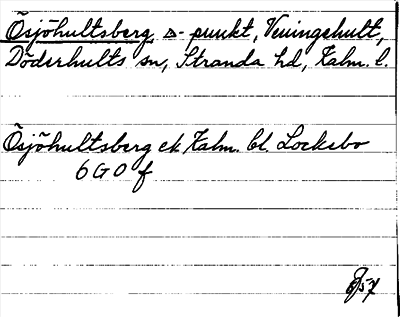 Ösjöhultsberg △-punkt, Veningehult,
Döderhults sn, Stranda hd, Kalm. l.
Ösjöhultsberg ek Kalm. bl. Locksbo
6 G 0 f